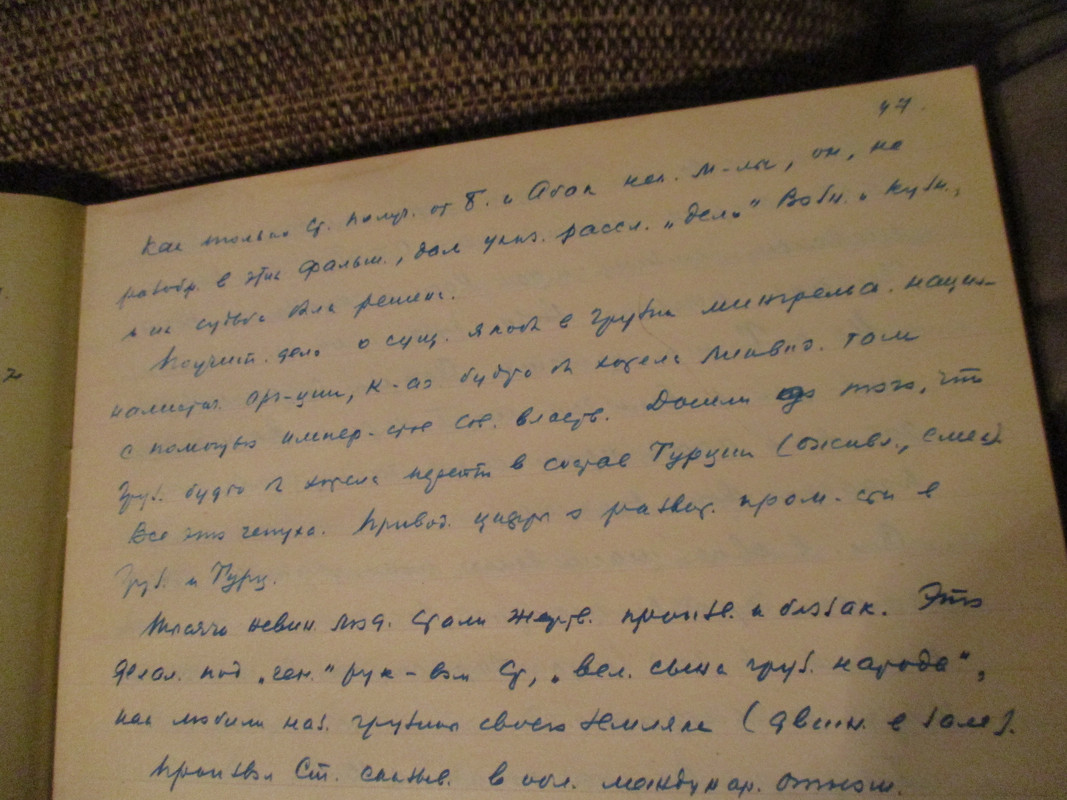 47.
Как только Ст. получ. от Б. и Абак. нек. м-лы, он, не
разобр. в этих фальш., дал указ. рассл. „дело" Возн. и Кузн.,
и их судьба была решена.
Поучит. дело о сущ. якобы в Грузии мингрельс. национ-
налистич. орг-ции, к-ая будто бы хотела ликвид. там
с помощью импер-стов сов. власть. Дошли до того, что
Груз. будто б хотела перейти в состав Турции (оживл., смех).
Все это чепуха. Привод. цифры о развит. пром-сти в
Груз. и Турц.
Тысячи невин. люд. стали жертв. произв. и беззак. Это
делал. под „ген." рук-вом Ст., „вел. сына груз. народа",
как любили наз. грузины своего земляка (движ. в зале).
Произвол Ст. сказыв. в обл. междунар. отнош.